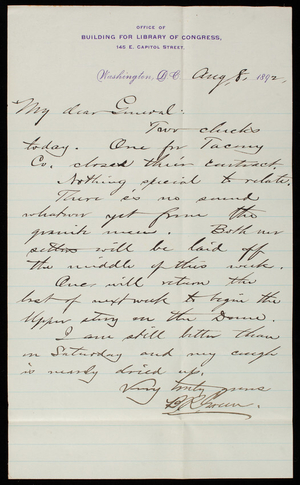 OFFICE OF
BUILDING FOR LIBRARY OF CONGRESS,
145 E. CAPITOL STREET.
Washington, D.C. Aug 8, 1892,
My dear General:
Two checks
today. One for Tacony
Co. closed their contract.
Nothing special to relate.
There is no sound
whatever yet from the
granite men. Both our
setters will be laid off
the middle of this week.
Ones will return the
last of next week to begin the
upper story on the Dome.
I am still better than
on Saturday and my cough
is nearly dried up.
Very truly yours
B R Green.